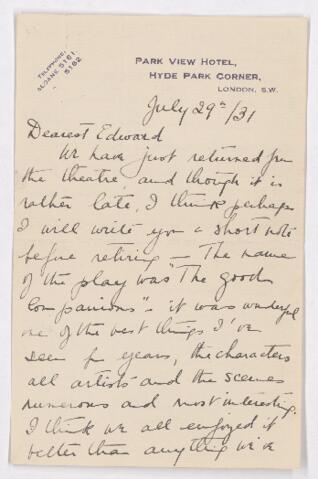 TELEPHONE:
SLOANE 5161
5162
PARK VIEW HOTEL,
HYDE PARK CORNER,
LONDON, S.W.
July 29th/31
Dearest Edward
We have just returned from
the theatre, and though it is
rather late, I think perhaps
I will write you a short note
before retiring — The name
of the play was "The Good
Companions" - it was wonderful
one of the best things I've
seen for years, the characters
all artists and the scenes
numerous and most interesting.
I think we all enjoyed it
better than anything we've